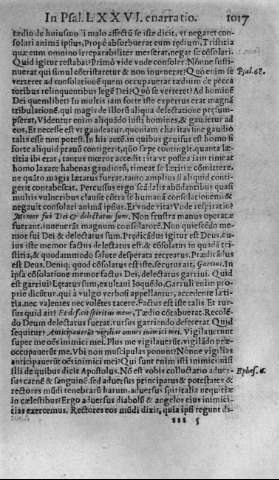 In Psal. LXXVI. enarratio. 1017
tædio de huiusmodi malo affectū se iste dicit, vt negaret conso-
lari animā ipsius, Propè absorbuerat eum tędium, Tristitia
quæ eum omnino irreparabiliter merserat, negat se cōsolari.
Quid igitur restabat? Primò vide vnde consoler. Nōne susti-
nuerat qui simul cōtristaretur & non inuenerat? Quò enim se
verteret ad consolationē quem occupauerat tædium de pecca
toribus relinquentibus legē Dei? Quò se verteret? Ad hominē
Psal. 68.
Dei quemlibet? In multis iam fortè est expertus eam magnā
tribulationē, qui magis de illorū aliqua delectatione
pserat, Videntur enim aliquando iusti homines, & gaudetur ad
eos, Et necesse est vt gaudeatur, quoniam charitas sine gaudio
talis esse non potest. In his autē, in quibus gauisus est homo si
fortè aliquid prauū contigerit, quod sæpe contingit, quanta læ-
titia ibi erat, tantus mœror accedit: ita vt postea iam timeat
homo laxare habenas gaudendi, timeat se lætitiæ committere,
ne quātò magis lætatus fuerat, tantò ampliùs si aliquid conti-
gerit contabescat. Percussus ergo scādalis abundantibus quasi
multis vulneribus claudit cōtra se humanā consolationem &
negauit consolari anima ipsius. Et vnde vita? Vnde respiratio?
Memor fui Dei & delectatus sum. Non frustra manus operatæ
fuerant, inuenerāt magnum consolatorē. Non quiescēdo me-
mor fui Dei & delectatus sum. Prędicādus igitur est Deus, cu-
ius iste memor factus delectatus est & cōsolatus in quadā tri-
stitia, & quodammodo salute desperata recreatus. Prædicādus
est Deus. Denique, quod cōsolatus est iste, sequitur, Garriui. In
ipsa cōsolatione memor factus Dei, delectatus garriui. Quid
est garriui? Lætatus sum, exultaui loquēdo. Garruli enim pro-
priè dicūtur, qui à vulgo verbosi appellantur, accedente læti-
tia, nec valentes nec volētes tacere. Factus est iste talis. Et rur-
sus quid ait? Et defecit spiritus meus. Tædio cōtabuerat. Recolē-
do Deum delectatus fuerat, rursus garriendo defecerat. Quid
sequitur? Anticipauerūt vigilias omnes inimici mei. Vigilauerunt
super me oēs inimici mei. Plus me vigilauerūt, vigilādo præ-
occupauerūt me. Vbi non muscipulas ponunt? Nōnne vigilias
anticipauerūt oēs inimici mei? Qui sunt enim isti inimici nisi
illi de quibus dicit Apostolus. Nō est vobis colluctatio aduer-
Ephes. 6.
sus carnē & sanguinē sed aduersus principatus & potestates &
rectores mūdi tenebrarū harum, aduersus spiritalia nequitiæ
in cælestibus? Ergo aduersus diabolū & angelos eius inimici-
tias exercemus. Rectores eos mūdi dixit, quia ipsi regunt di-
5